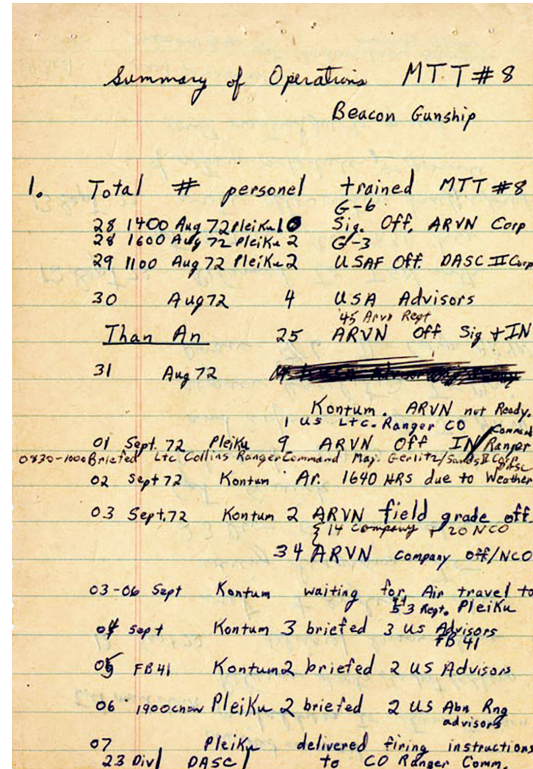 Summary of Operations MTT#8
Beacon Gunship
1. Total # personel trained MTT#8
G-6
28 1400 Aug 72 Pleiku 10 Sig. Off. ARVN Corp
G-3
28 1600 Aug 72 Pleiku 2
29 1100 Aug 72 Pleiku 2 USAF Off. DASC II Corp
30 Aug 72 4 USA Advisors
45 Arvn Regt
Than An 25 ARVN Off Sig + IN
31 Aug 72
Kontum. ARVN not Ready.
1 US Ltc. Ranger CO
01 Sept. 72 Pleiku 9 ARVN Off IN/Ranger Command
0830-1000 Briefed Ltc Collins Ranger Command Maj. Gerlitz/Sands II Corp DASC
02 Sept 72 Kontum Ar. 1640 HRs due to Weather
03 Sept. 72 Kontum 2 ARVN field grade off.
14 Company + 20 NCO
34 ARVN Company Off/NCO
03-06 Sept Kontum waiting for Air travel to Pleiku
53 Regt.
04 Sept Kontum 3 briefed 3 US Advisors
FB 41
05 FB41 Kontum 2 briefed 2 US Advisors
06 1900 Pleiku 2 briefed 2 US Abn Rng
advisors
07 Pleiku delivered firing instructions
23 Div/ DASC/ to CO Ranger Comm.